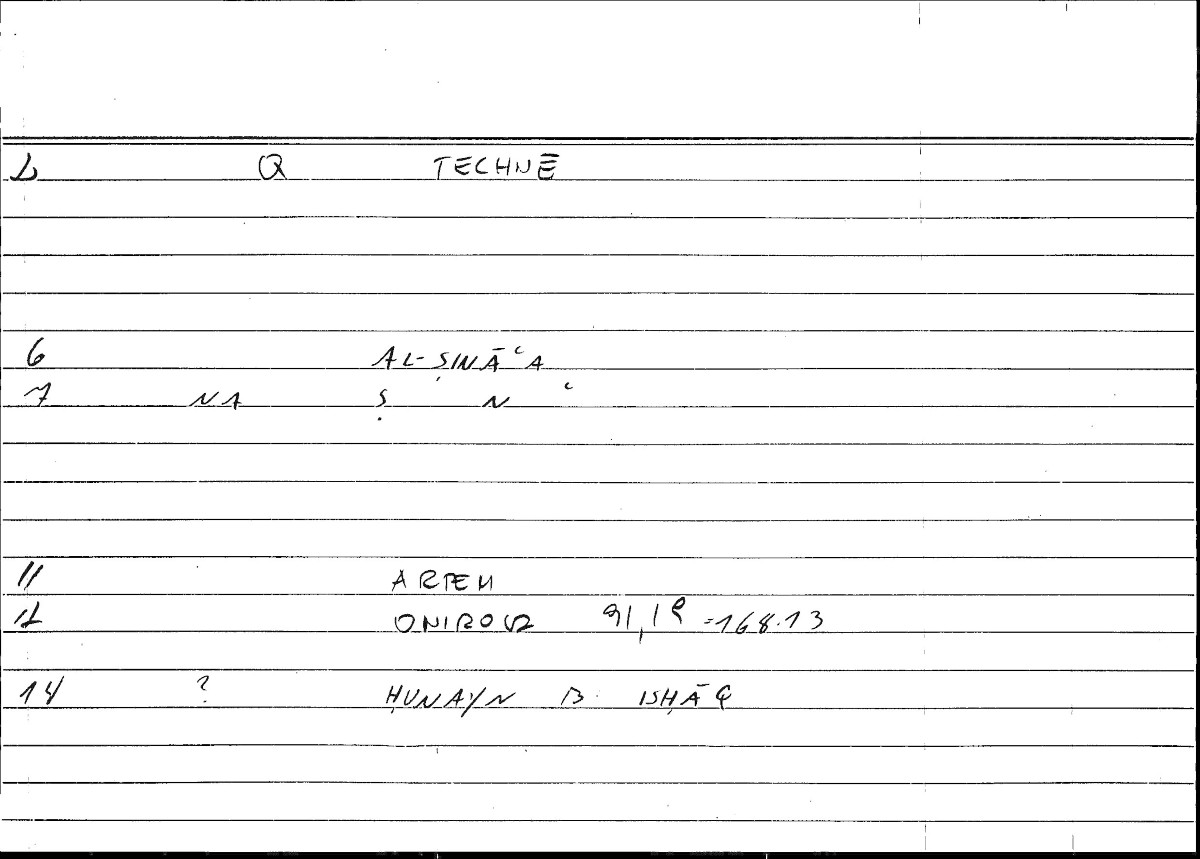 2 Q TECHNĒ
6 AL-ṢINĀʿA
7 NA Ṣ N ʿ
11 ARTEM
12 ONIROCR 91,19 = 168.13
14 ? ḤUNAYN B. ISḤĀQ